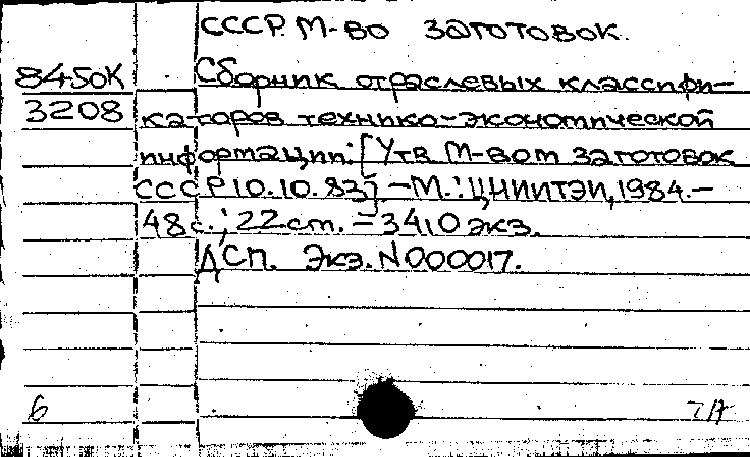 СССР. М-во заготовок.
8450К Сборник отраслевых классифи-
3208 каторов технико-экономической
информации: [Утв М-вом заготовок
СССР 10.10.83] - М.: ЦНИИТЭИ, 1984. -
48с.; 22 см. - 340 экз.
ДСП. Экз. N000017.
6